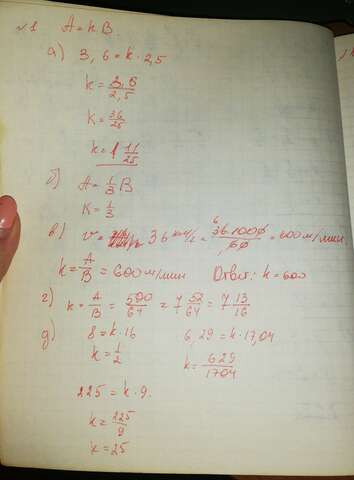 №1 A=k·B.
а) 3,6=k·2,5
k=3,6/2,5
k=36/25
k=1 11/25
б) A=1/3 B
K=1/3
в) v= 36 км/ч = 36·1000/60 = 600 м/мин.
k=A/B=600м/мин Ответ: k=600
г) k=A/B=500/64=7 52/64=7 13/16
д) 8=k·16 6,29=k·17,04
k=1/2 k=629/1704
225=k·9.
k=225/9
k=25